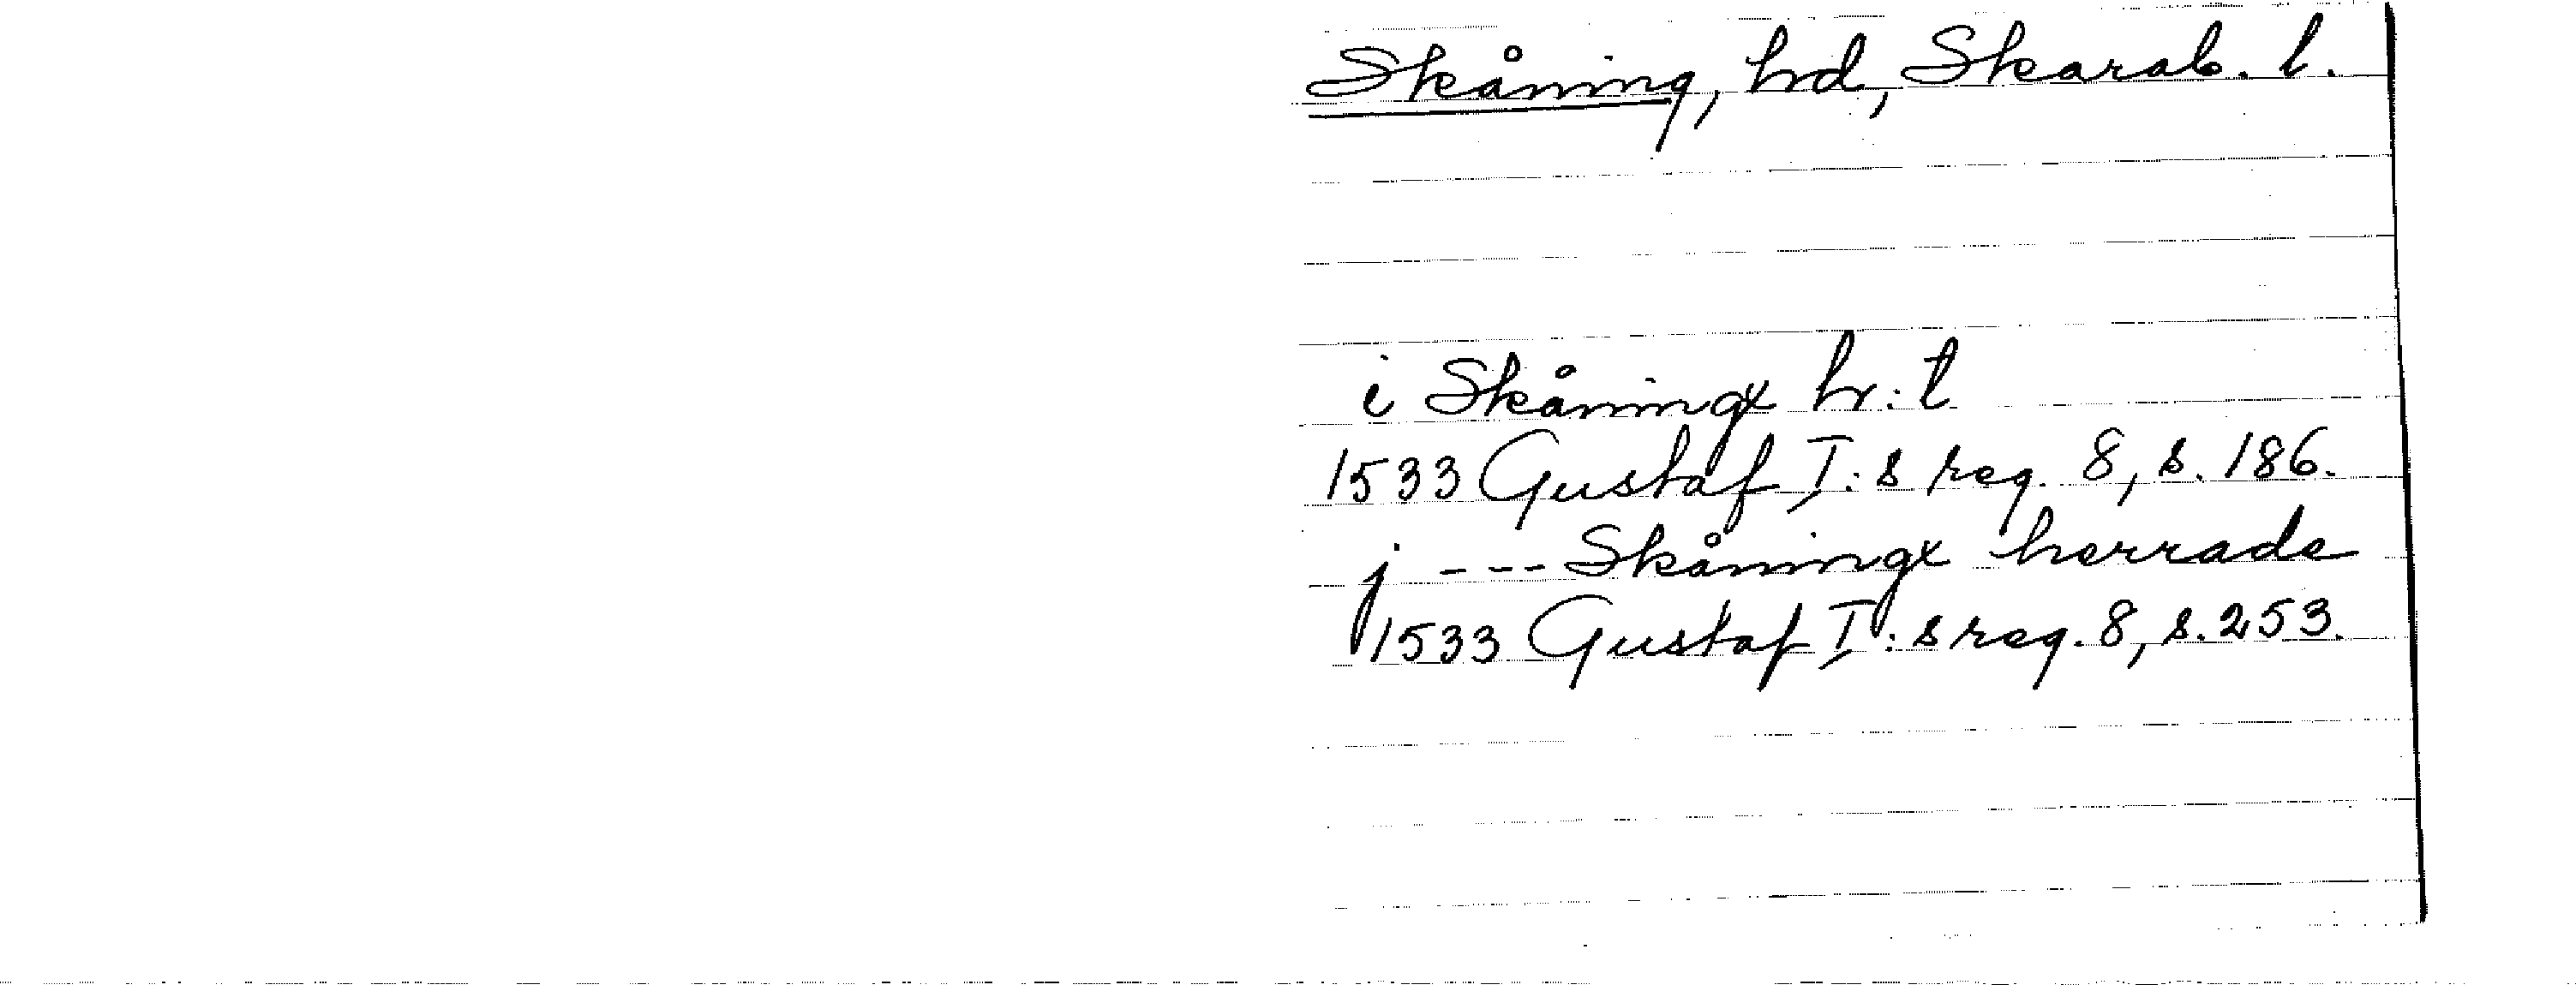 Skåning, hd, Skarab. l.
i Skåningx hr:t
1533 Gustaf I:s reg. 8, s. 186.
j --- Skåningx herrade
1533 Gustaf I:s reg. 8, s. 253.